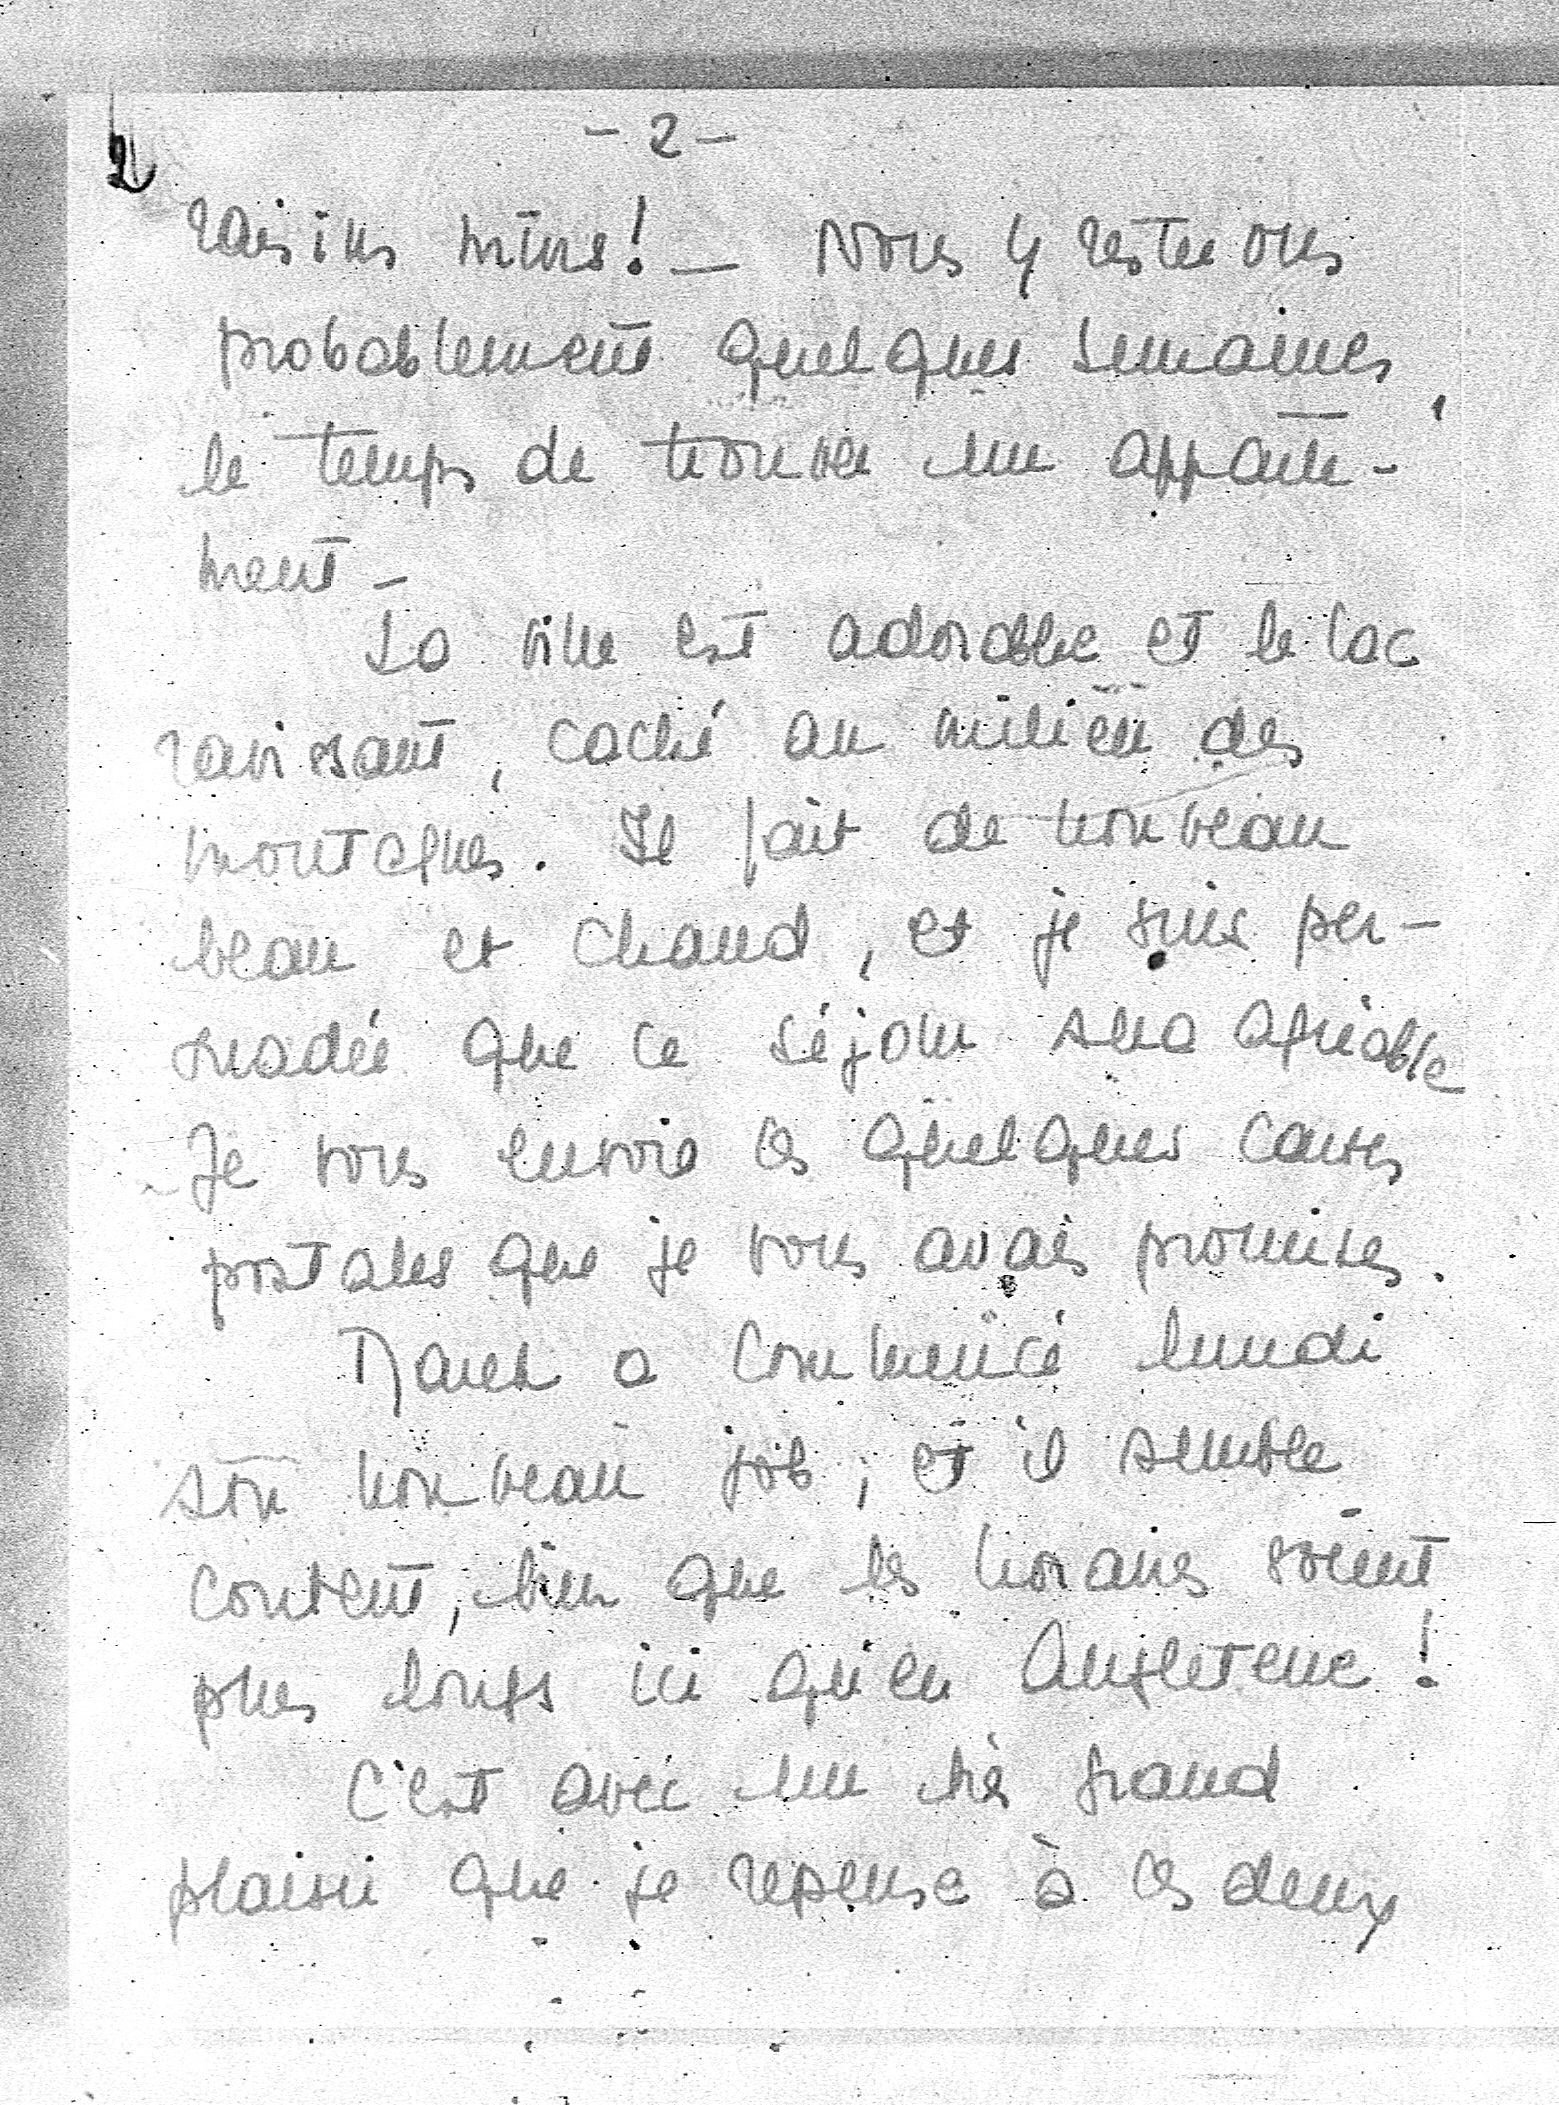 - 2 -
2
raisins mûrs! — Nous y resterons
probablement quelques semaines,
le temps de trouver un apparte-
ment –
La ville est adorable et le lac
ravissant, caché au milieu des
montagnes. Il fait de nouveau
beau et chaud, et je suis per-
suadée que ce séjour sera agréable
Je vous envoie les quelques cartes
postales que je vous avais promises.
a commencé lundi
son nouveau job, et il semble
content, bien que les horaires soient
plus longs ici qu'en Angleterre!
C'est avec un très grand
plaisir que je repense à ces deux